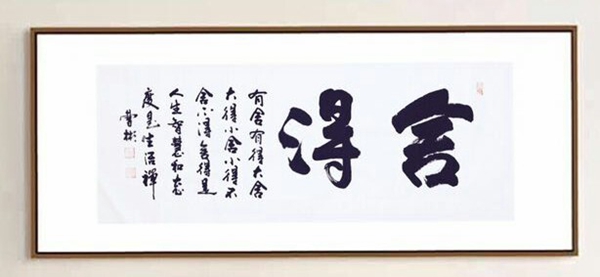 舍得
有舍有得大舍
大得小舍小得不
舍不得舍得是
人生智慧和态
度是生活禪